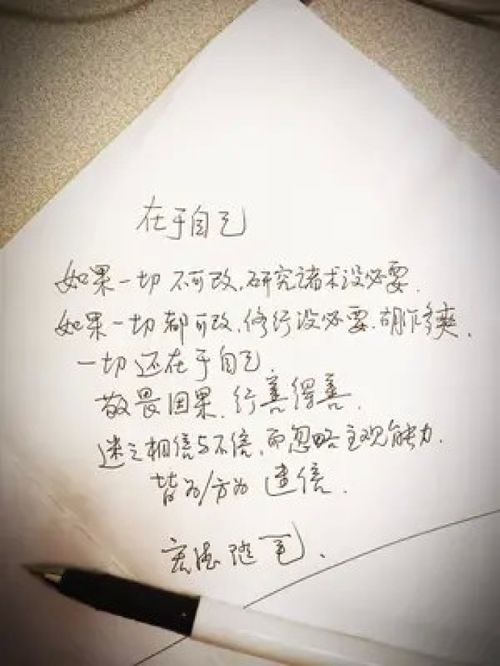 在于自己
如果一切不可改,研究诸术没必要.
如果一切都可改,修行没必要,胡作多爽.
一切还在于自己.
敬畏因果.行善得善.
迷之相信与不信,而忽略主观能力.
皆为/方为 遣信.
宏德随笔.